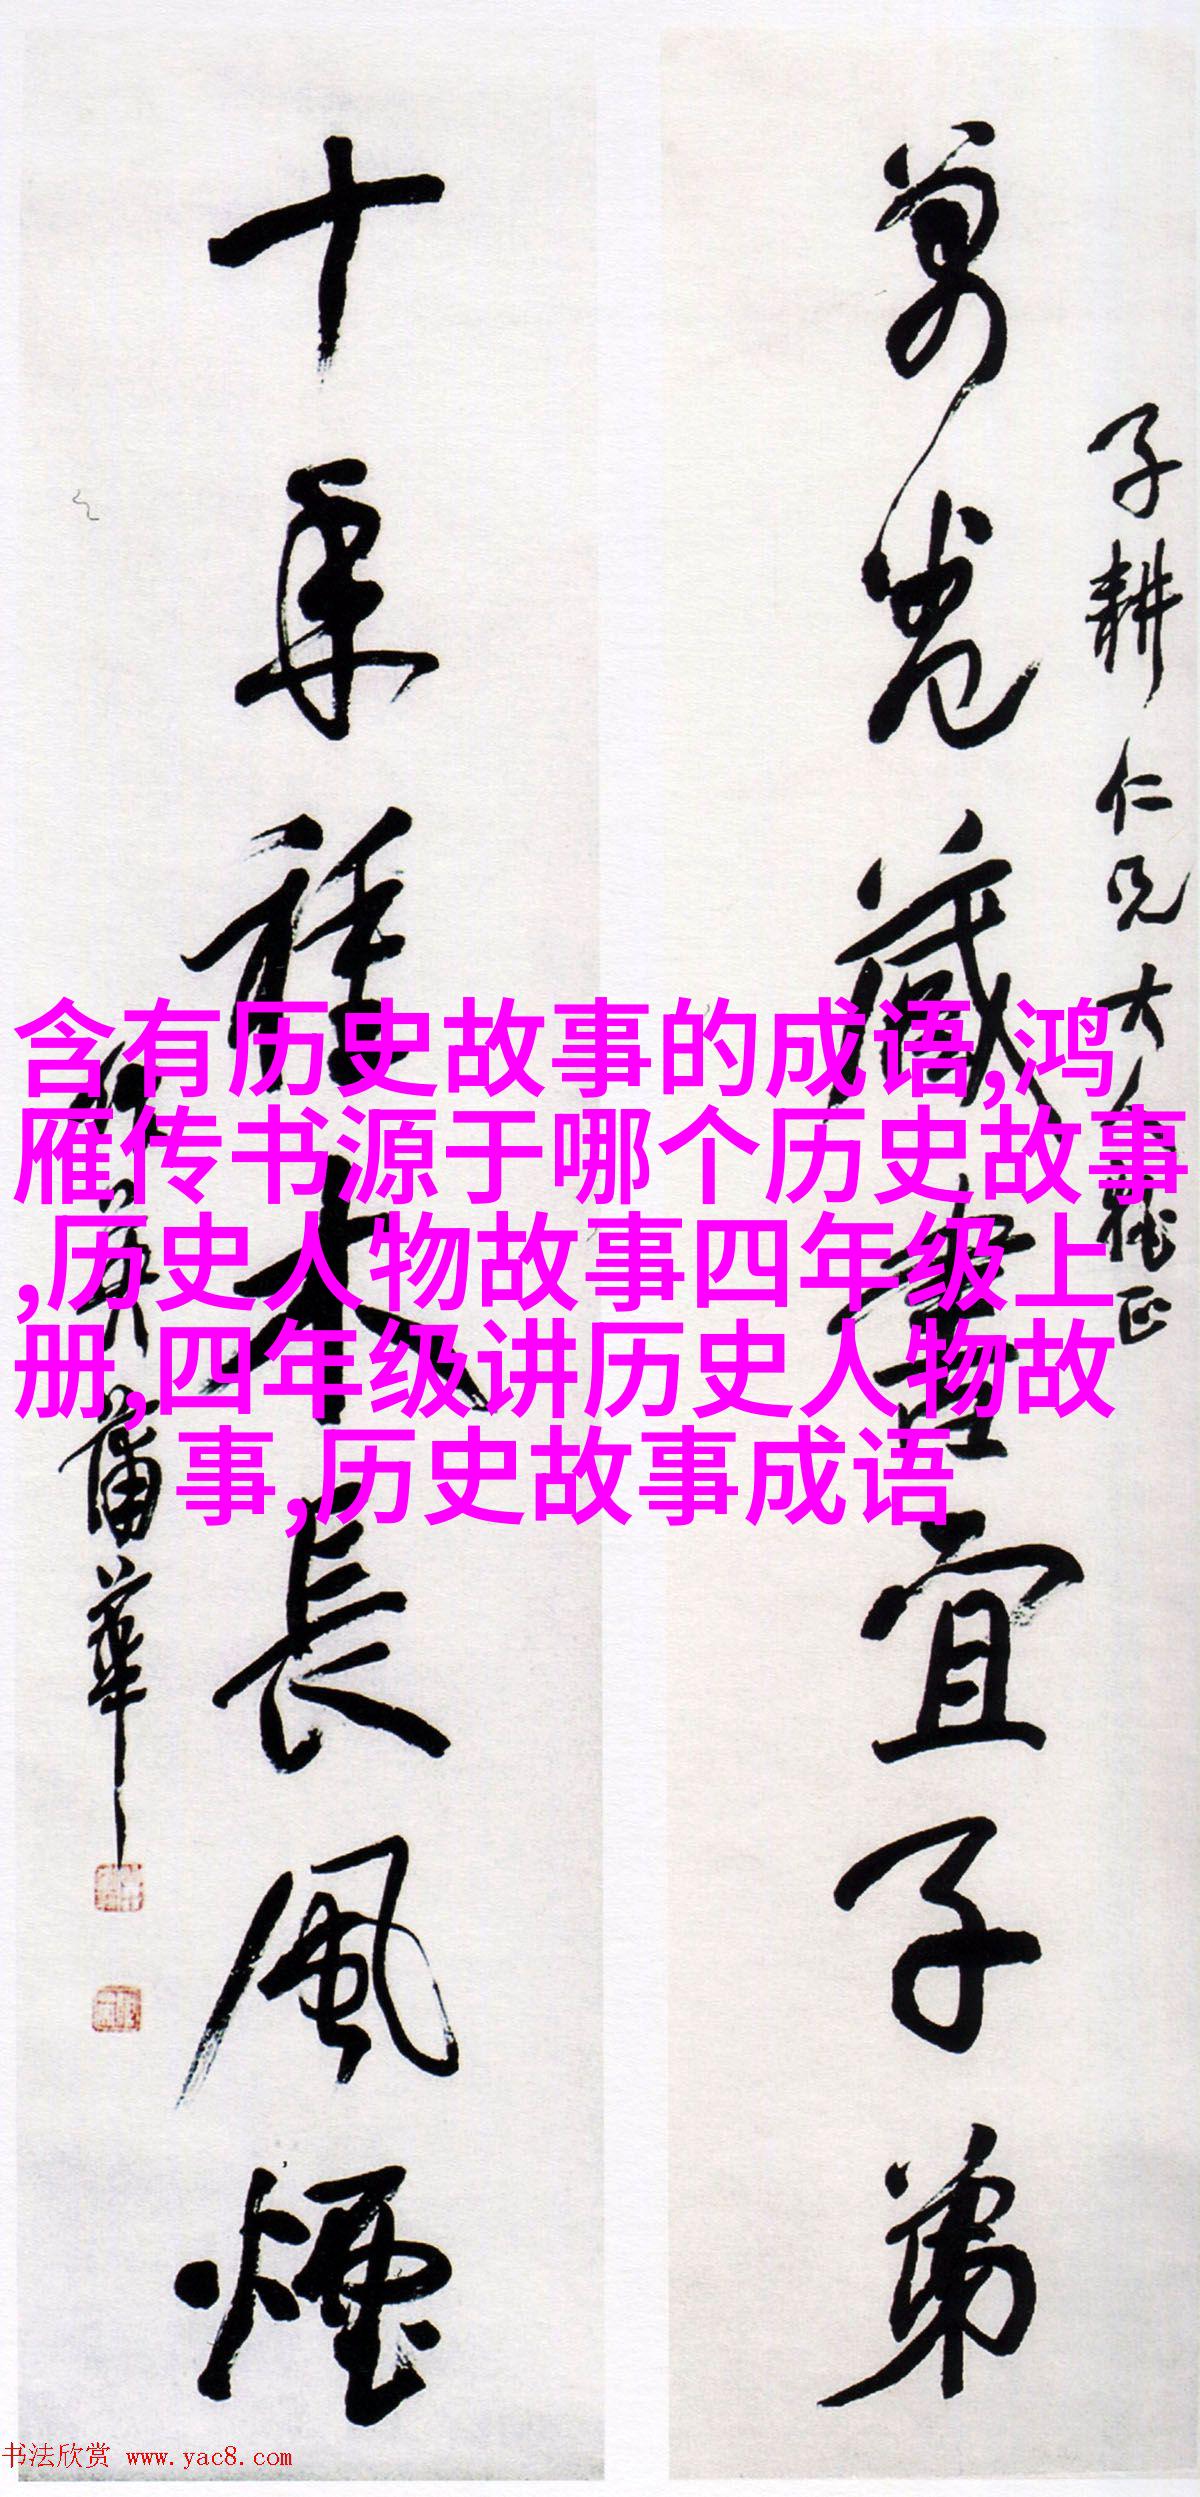 子耕仁兄大人雅正
萬卷藏書宜子弟
十年種木長風煙
蒲華
含有历史故事的成语,鸿
雁传书源于哪个历史故事
,历史人物故事四年级上
册,四年级讲历史人物故
事,历史故事成语
书法欣赏 www.yac8.com